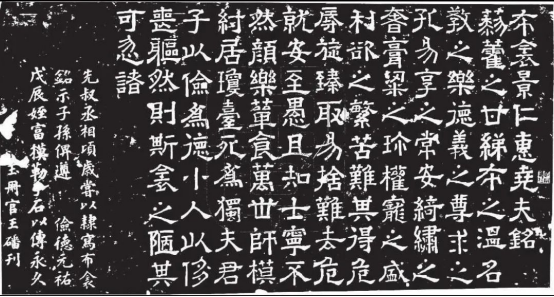 布衾景仁惠堯夫銘
藜藿之甘綈布之溫名
教之樂德義之尊求之
孔易享之常安綺繡之
奢膏粱之珍權寵之盛
利欲之繁苦難其得危
辱旋臻取易捨難去危
就安至愚且知士寧不
然顏樂簞食萬世師模
紂居瓊臺死爲獨夫君
子以儉爲德小人以侈
喪軀然則斯衾之陋其
可忽諸
先叔丞相頃歲嘗以隸寫布衾
銘示子孫俾遵儉德元祐
戊辰姪富模勒于石以傳永久
玉冊官王磻刊